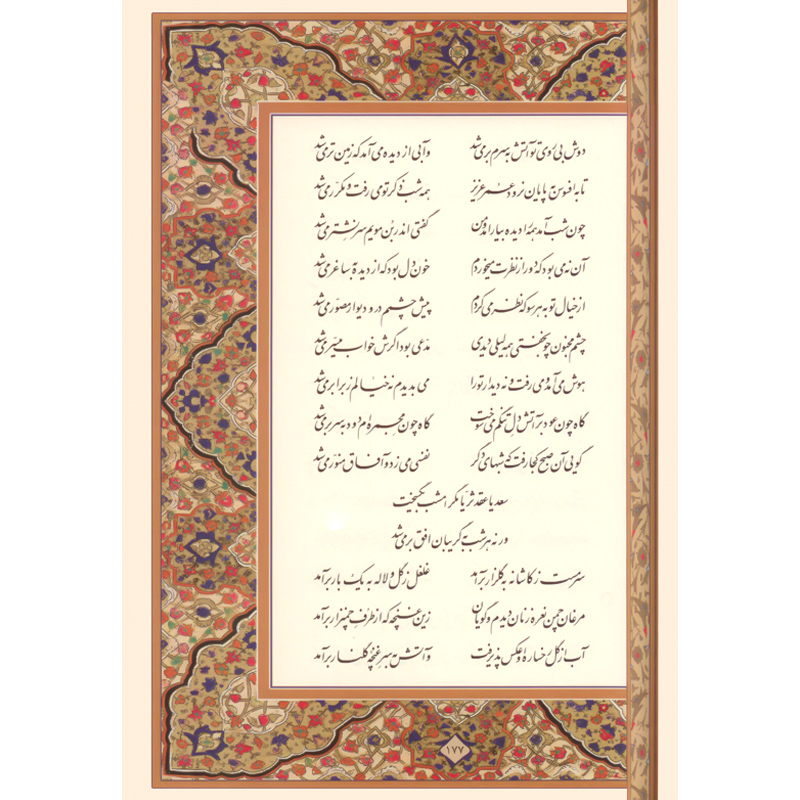 دوش بی‌روی تو آتش به سرم بر می‌شد وآبی از دیده می‌آمد که زمین تر می‌شد
تا به افسوس به پایان نرود عمر عزیز همه شب ذکر تو می‌رفت و مکرر می‌شد
چون شب آمد همه را دیده بیارامد و من گفتی اندر بن مویم سر نشتر می‌شد
آن نه می بود که دور از نظرت می‌خوردم خون دل بود که از دیده به ساغر می‌شد
از خیال تو به هر سو که نظر می‌کردم پیش چشمم در و دیوار مصور می‌شد
چشم مجنون چو بخفتی همه لیلی دیدی مدعی بود اگرش خواب میسر می‌شد
هوش می‌آمد و می‌رفت و نه دیدار تو را می‌بدیدم نه خیالم ز برابر می‌شد
گاه چون عود بر آتش دل تنگم می‌سوخت گاه چون مجمره‌ام دود به سر بر می‌شد
گویی آن صبح کجا رفت که شبهای دگر نفسی می‌زد و آفاق منور می‌شد
سعدیا عقد ثریا مگر امشب بگسیخت
ور نه هر شب به گریبان افق بر می‌شد
سرمست ز کاشانه به گلزار برآمد غلغل ز گل و لاله به یک بار برآمد
مرغان چمن نعره زنان دیدم و گویان زین غنچه که از طرف چمنزار برآمد
آب از گل رخساره او عکس پذیرفت وآتش به سر غنچه گلنار برآمد
۱۷۷